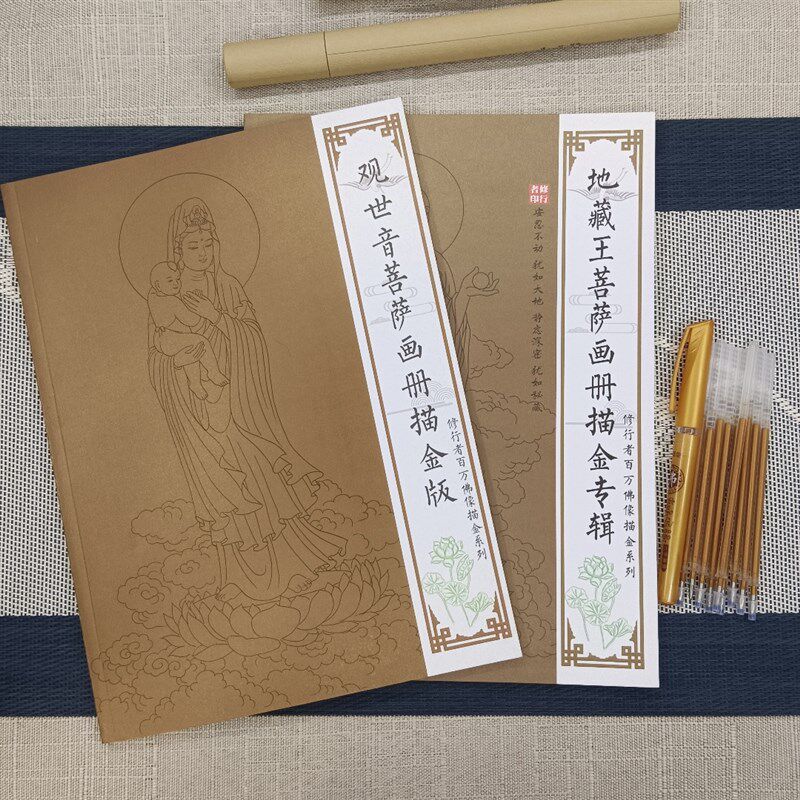 观世音菩萨画册描金版
修行者百万佛像描金系列
地藏王菩萨画册描金专辑
修行者百万佛像描金系列
修行者印
安忍不动 犹如大地 静虑深密 犹如秘藏